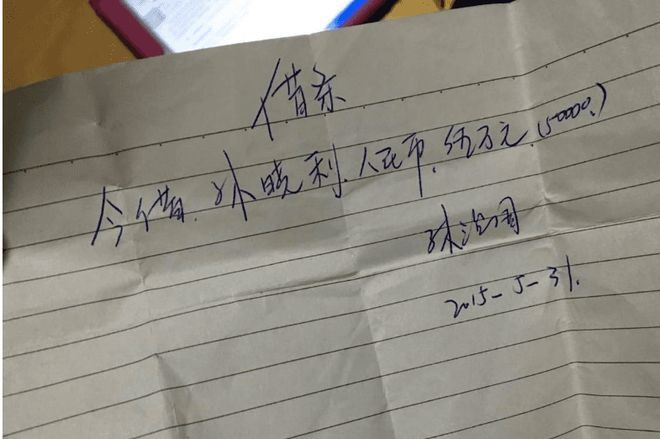 借条
今借.孙晓利.人民币.伍万元.(50000.)
孙治国
2015-5-31.